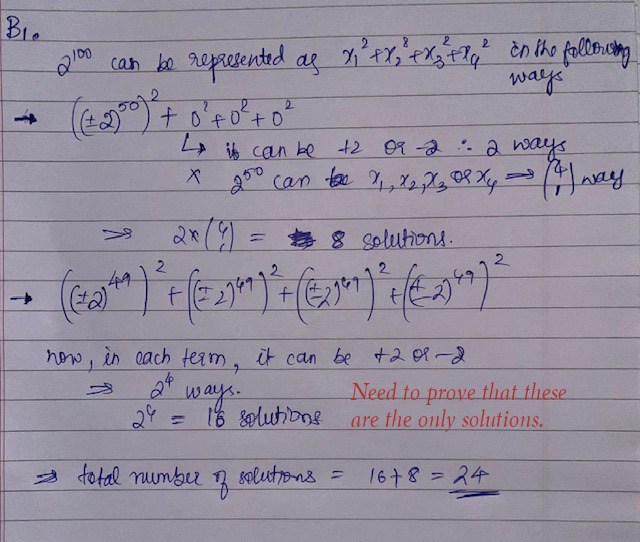 B1.
2^100 can be represented as x₁² + x₂² + x₃² + x₄² in the following
ways
→ ((±2)^50)² + 0² + 0² + 0²
↳ it can be +2 or -2 ∴ 2 ways
× 2^50 can be x₁, x₂, x₃ or x₄ ⇒ (4 1) way
⇒ 2×(4 1) = 8 solutions.
→ ((±2)^49)² + ((±2)^49)² + ((±2)^49)² + ((±2)^49)²
now, in each term, it can be +2 or -2
⇒ 2⁴ ways.
2⁴ = 16 solutions
Need to prove that these
are the only solutions.
⇒ total number of solutions = 16+8 = 24